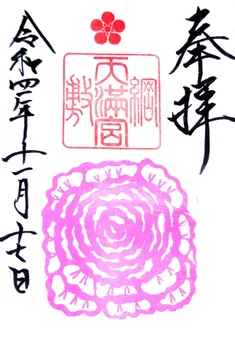 奉拝
綱敷天満宮
令和四年十一月十七日